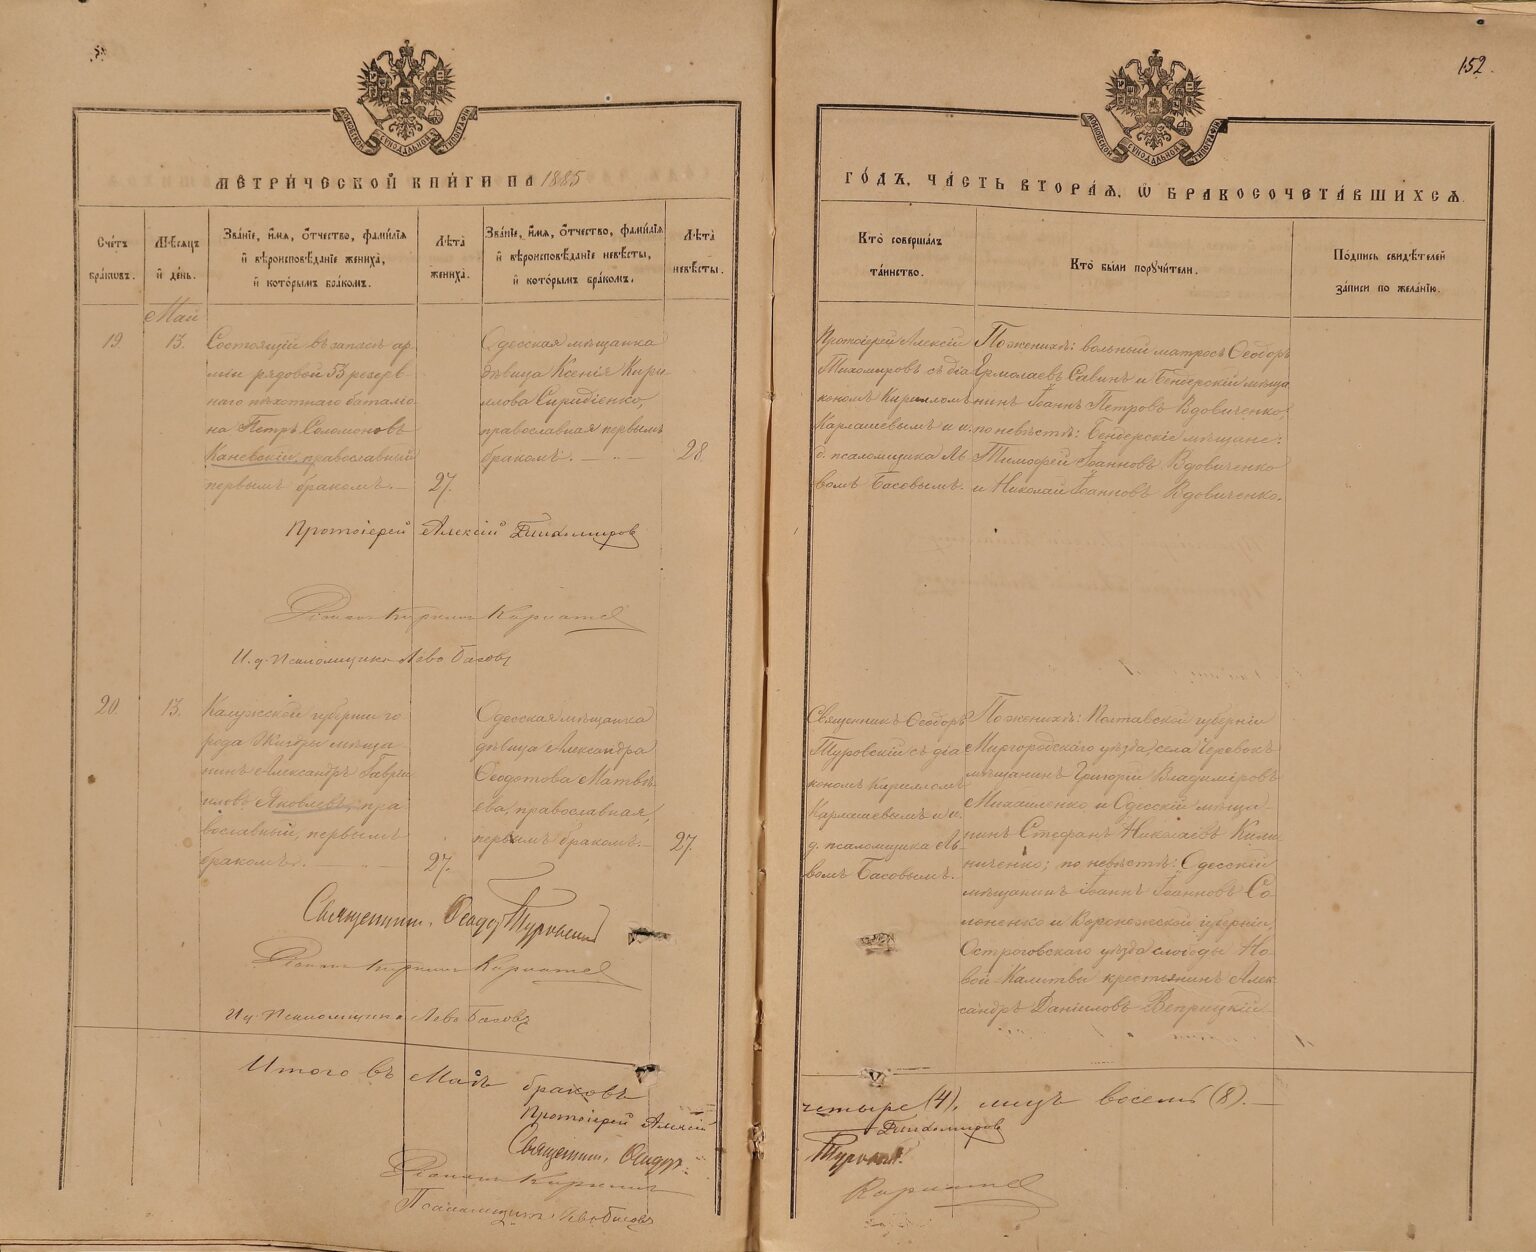 152.
МОСКОВСКОЙ СѴНОДАЛЬНОЙ ТИПОГРАФІИ
МОСКОВСКОЙ СѴНОДАЛЬНОЙ ТИПОГРАФІИ
МЕТРИ́ЧЕСКОЙ КНИ́ГИ НА 1885
ГО́ДЪ, ЧА́СТЬ ВТОРА́Я, Ѡ БРАКОСОЧЕТА́ВШИХСЯ
Сче́тъ бра́ковъ.
Мѣ́сяцъ и́ де́нь.
Зва́нїе, и́мя, о́тчество, фами́лїя и́ вѣроисповѣ́данїе жениха̀, и́ кото́рымъ бра́комъ.
Лѣ́та жениха̀.
Зва́нїе, и́мя, о́тчество, фами́лїя и́ вѣроисповѣ́данїе невѣ́сты, и́ кото́рымъ бра́комъ.
Лѣ́та невѣ́сты.
Кто̀ соверша́лъ та́инство.
Кто̀ бы́ли пору́чители.
По́дпись свидѣ́телей за́писи по жела́нїю.
Май
19.
13.
Состоящій въ запасѣ ар-
міи рядовой 53 резерв-
наго пѣхотнаго баталіо-
на Петръ Соломоновъ
Каневскій, православный
первымъ бракомъ.
27.
Одесская мѣщанка
дѣвица Ксенія Кири
лова Спиридіенко,
православная первымъ
бракомъ.
28
Протоіерей Алексій
Тихомировъ съ діа
кономъ Кирилломъ
Карташевымъ и и.
д. псаломщика Ль
вомъ Басовымъ.
По женихѣ: вольный матросъ Ѳеодоръ
Ермолаевъ Савинъ и Бендерскій мѣща
нинъ Іоаннъ Петровъ Вдовиченко,
по невѣстѣ: Бендерскіе мѣщане:
Тимофей Іоанновъ Вдовиченко
и Николай Іоанновъ Вдовиченко.
Протоіерей Алексій Тихомировъ
Діаконъ Кириллъ Карташев
И. д. Псаломщика Левъ Басовъ
20.
13.
Калужской губерніи го
рода Жиздры мѣща
нинъ Александръ Гаврі
иловъ Яковлевъ, пра-
вославный, первымъ
бракомъ.
27.
Одесская мѣщанка
дѣвица Александра
Ѳеодотова Матвѣ-
ева, православная,
первымъ бракомъ.
27.
Священникъ Ѳеодоръ
Туровскій съ діа
кономъ Кирилломъ
Карташевымъ и и.
д. псаломщика Ль-
вомъ Басовымъ.
По женихѣ: Полтавской губерніи
Миргородскаго уѣзда, села Черевокъ
мѣщанинъ Григорій Владиміровъ
Михайленко и Одесскій мѣща-
нинъ Стефанъ Николаевъ Кили
ниченко; по невѣстѣ: Одесскій
мѣщанинъ Іоаннъ Іоанновъ Со-
лоненко и Воронежской губерніи,
Острогожскаго уѣзда слободы Но-
вой Калитвы крестьянинъ Алек
сандръ Даніиловъ Веприцкій
Священник Ѳеодор Туровскій
Діаконъ Кириллъ Карташев
И. д. Псаломщика Левъ Басовъ
Итого въ Маѣ браковъ четыре (4), лицъ восемь (8).
Протоіерей Алексій Тихомировъ
Священник Ѳеодор Туровскій
Діаконъ Кириллъ Карташев
Псаломщикъ Левъ Басовъ